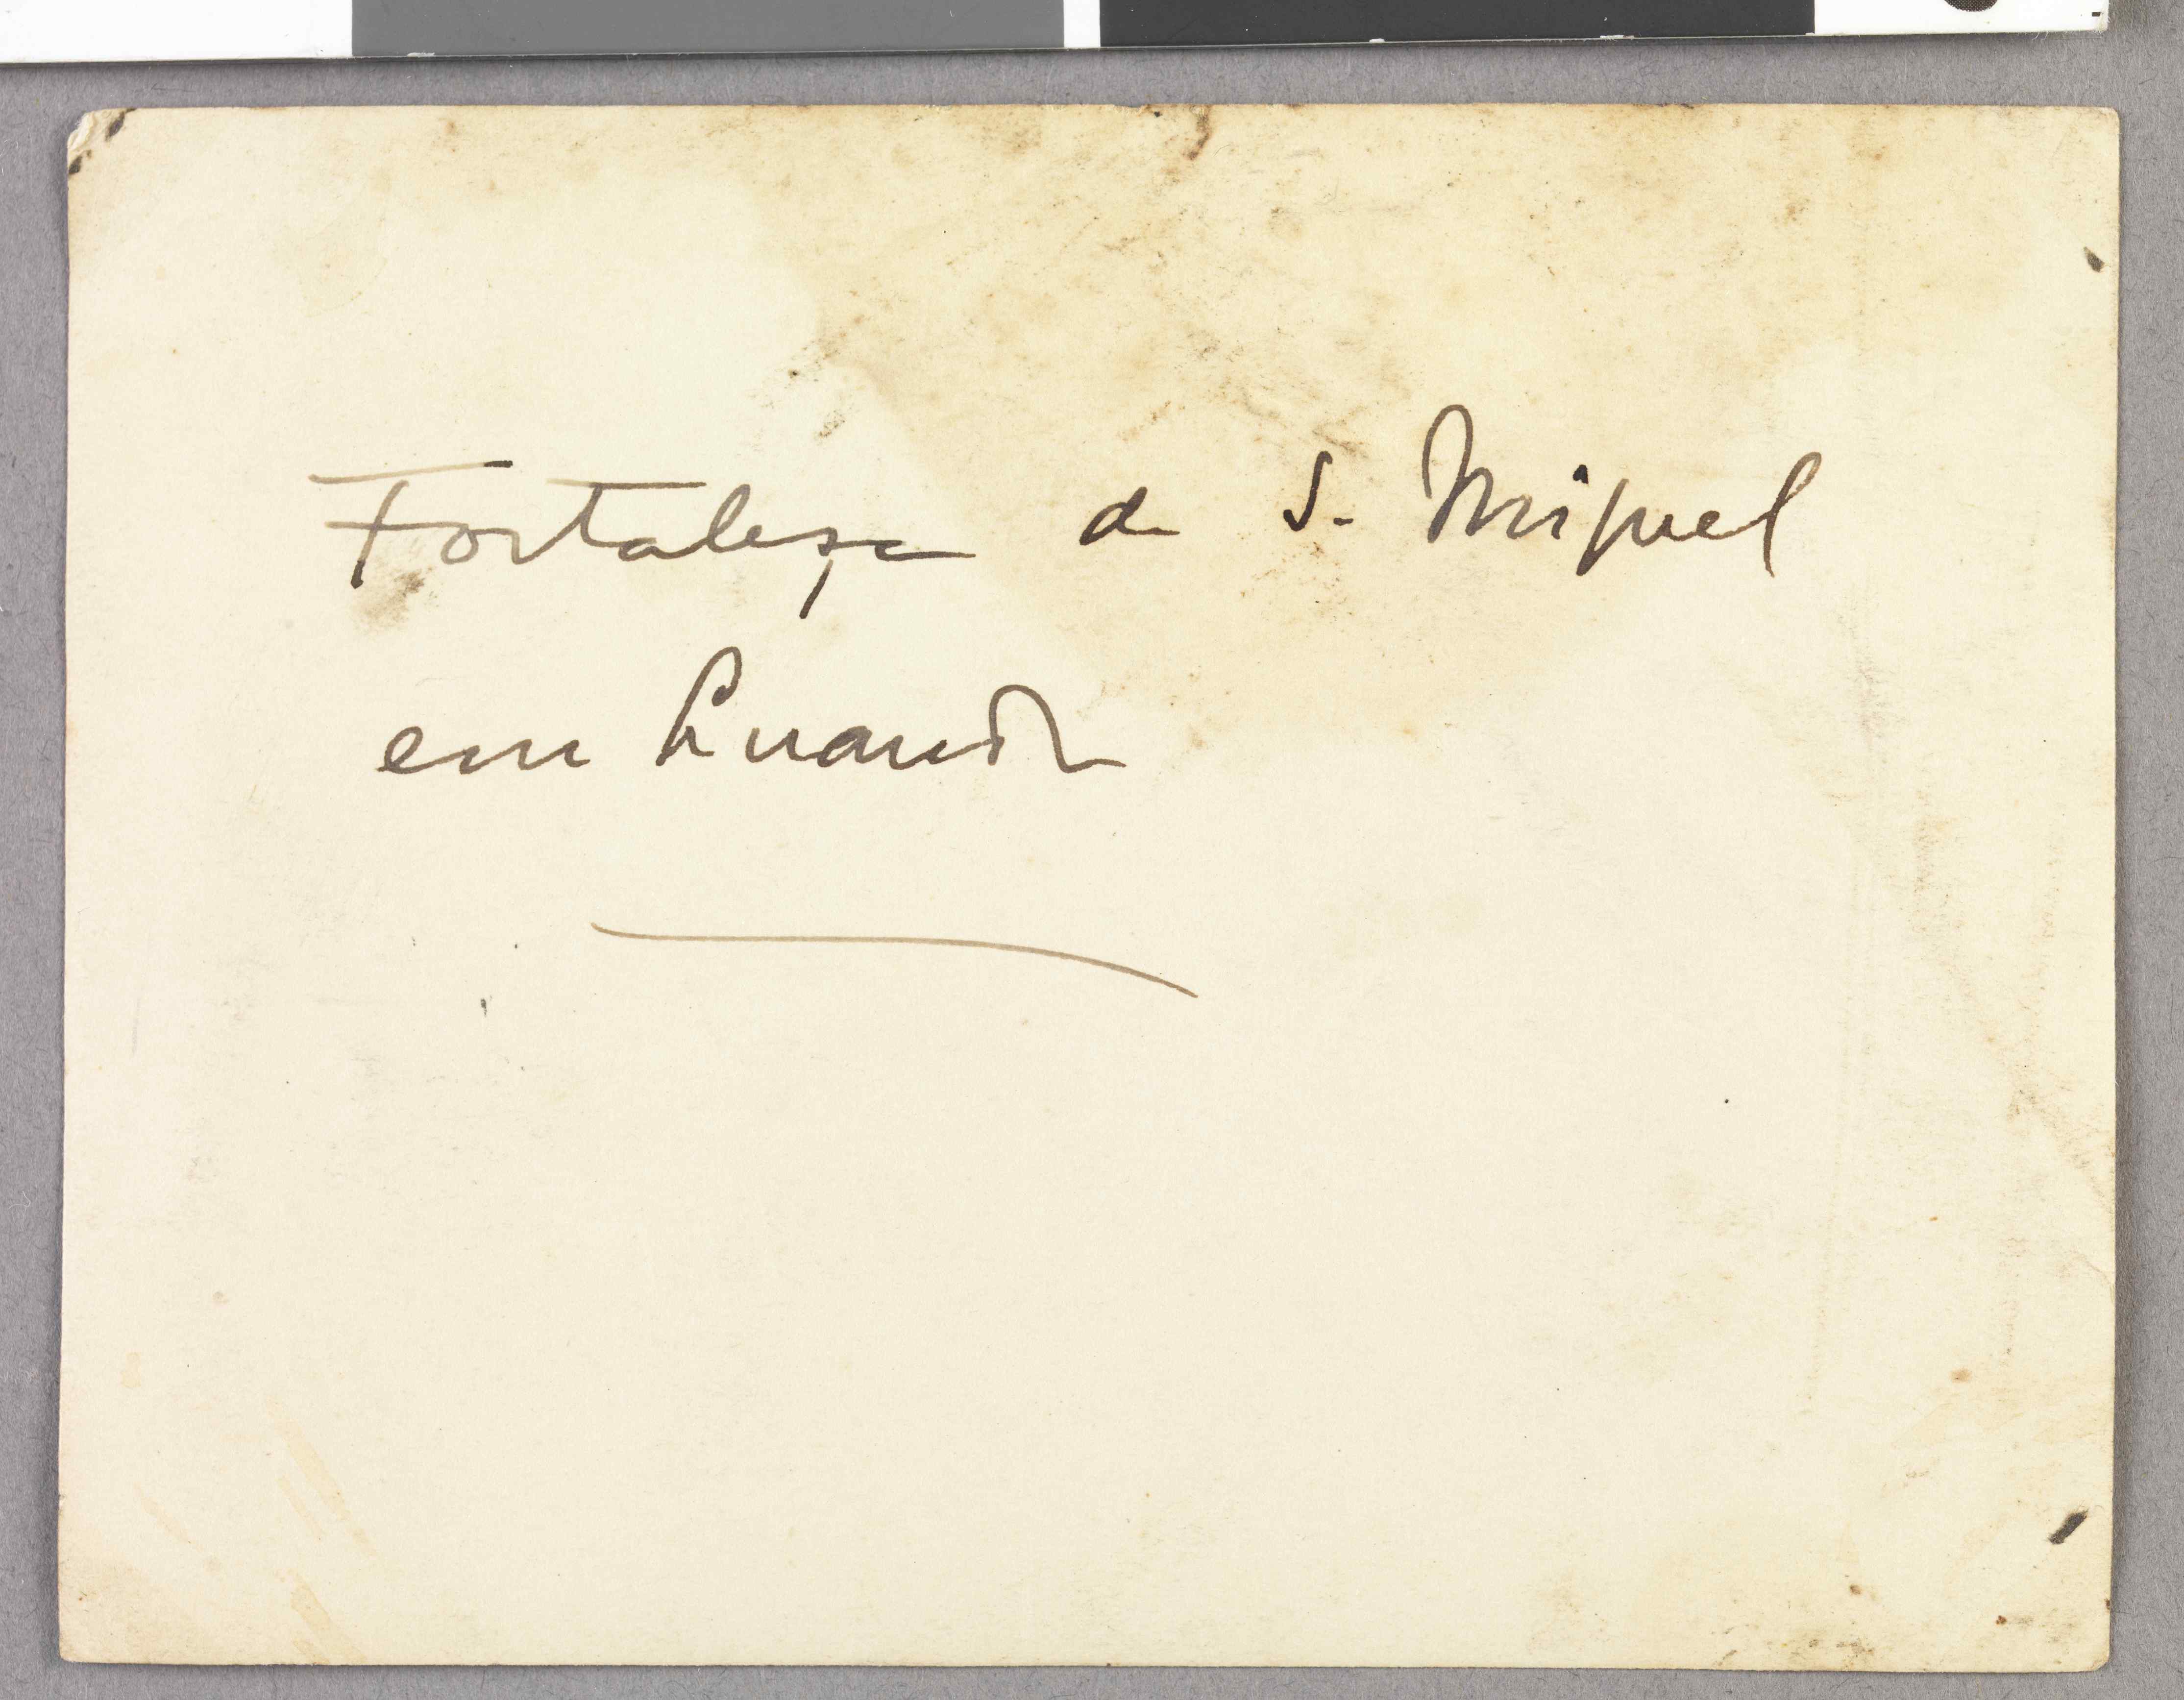 Fortaleza de S. Miguel
em Luanda